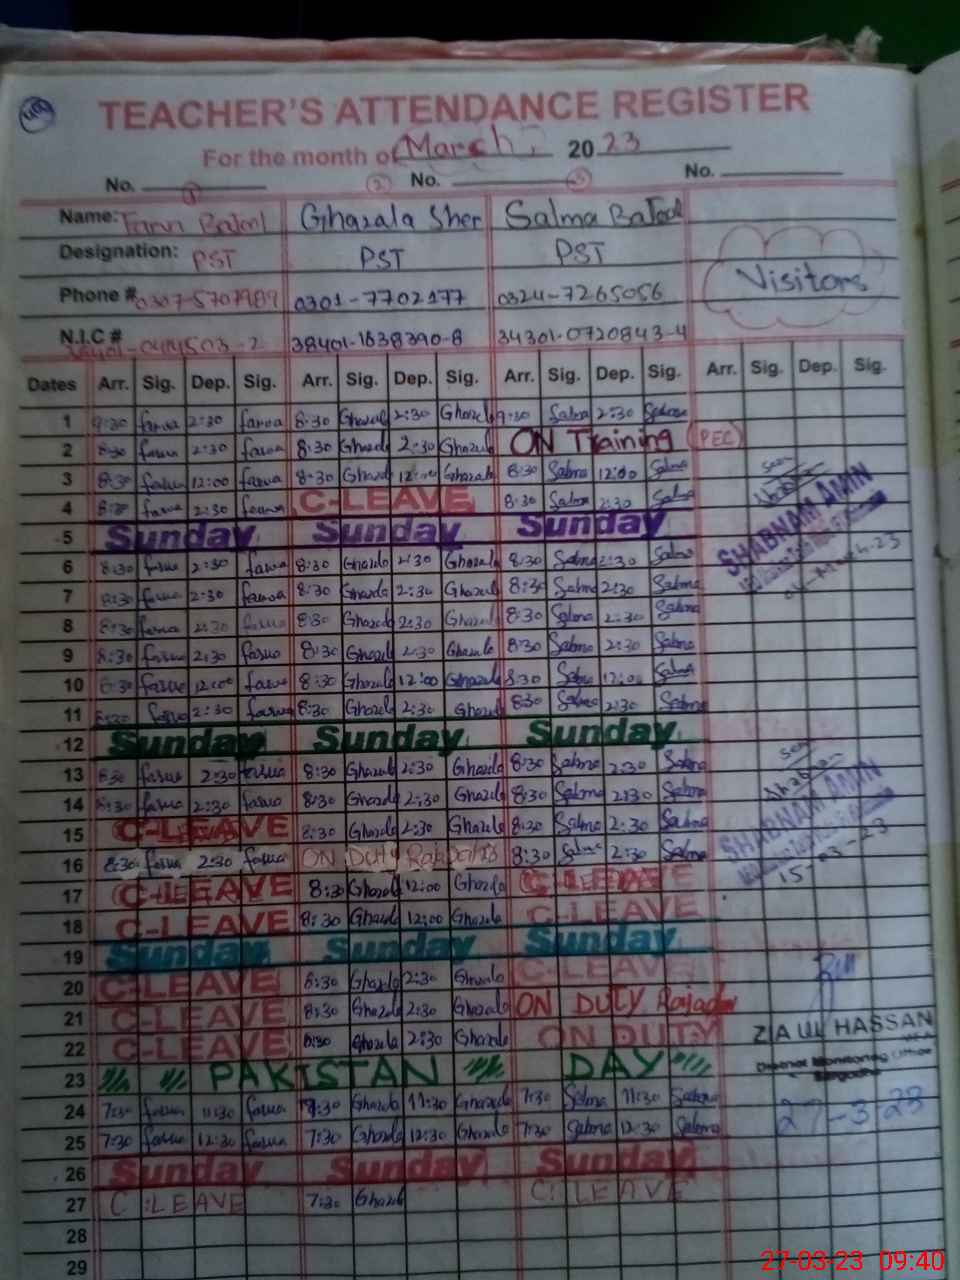 49
TEACHER'S ATTENDANCE REGISTER
For the month of March, 2023
No. 1 2 No. 3 No.
Name: Batool Ghazala Sher Salma Batool
Designation: PST PST PST Visitors
Phone # 0307-5707989 0301-7702177 0324-7265056
N.I.C # 38401-1638390-8 34301-0720843-4
Dates Arr. Sig. Dep. Sig. Arr. Sig. Dep. Sig. Arr. Sig. Dep. Sig. Arr. Sig. Dep. Sig.
1 9:30 farwa 2:30 farwa 8:30 Ghazala 2:30 Ghazala 9:30 Salma 2:30 Salma
2 8:30 farwa 2:30 farwa 8:30 Ghazala 2:30 Ghazala ON Training (PEC)
3 8:30 farwa 12:00 farwa 8:30 Ghazala 12:00 Ghazala 8:30 Salma 12:00 Salma
4 farwa 2:30 farwa C-LEAVE 8:30 Salma 2:30 Salma
5 Sunday Sunday Sunday SHABNAM AMIN
6 8:30 farwa 2:30 farwa 8:30 Ghazala 2:30 Ghazala 8:30 Salma 2:30 Salma
7 8:30 farwa 2:30 farwa 8:30 Ghazala 2:30 Ghazala 8:30 Salma 2:30 Salma
8 8:30 farwa 2:30 farwa 8:30 Ghazala 2:30 Ghazala 8:30 Salma 2:30 Salma
9 8:30 farwa 2:30 farwa 8:30 Ghazala 2:30 Ghazala 8:30 Salma 2:30 Salma
10 8:30 farwa 12:00 farwa 8:30 Ghazala 12:00 Ghazala 8:30 Salma 12:00 Salma
11 8:30 farwa 2:30 farwa 8:30 Ghazala 2:30 Ghazala 8:30 Salma 2:30 Salma
12 Sunday Sunday Sunday
13 8:30 farwa 2:30 farwa 8:30 Ghazala 2:30 Ghazala 8:30 Salma 2:30 Salma
14 8:30 farwa 2:30 farwa 8:30 Ghazala 2:30 Ghazala 8:30 Salma 2:30 Salma
15 C-LEAVE 8:30 Ghazala 2:30 Ghazala 8:30 Salma 2:30 Salma SHABNAM AMIN
16 8:30 farwa 2:30 farwa ON Duty 8:30 Salma 2:30 Salma 15-03-23
17 C-LEAVE 8:30 Ghazala 12:00 Ghazala C-LEAVE
18 C-LEAVE 8:30 Ghazala 12:00 Ghazala C-LEAVE
19 Sunday Sunday Sunday
20 C-LEAVE 8:30 Ghazala 2:30 Ghazala C-LEAVE
21 C-LEAVE 8:30 Ghazala 2:30 Ghazala ON DUTY
22 C-LEAVE 8:30 Ghazala 2:30 Ghazala ON DUTY ZIA UL HASSAN
23 PAKISTAN DAY District Monitoring Officer
Sargodha
24 7:30 farwa 11:30 farwa 7:30 Ghazala 11:30 Ghazala 7:30 Salma 11:30 Salma 27-3-23
25 7:30 farwa 12:30 farwa 7:30 Ghazala 12:30 Ghazala 7:30 Salma 12:30 Salma
26 Sunday Sunday Sunday
27 C:LEAVE 7:30 Ghazala C:LEAVE
28
29
27-03-23 09:40